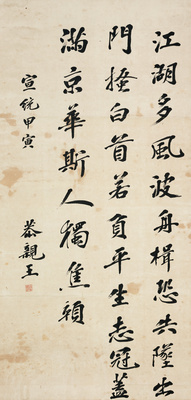 江湖多風波舟楫恐失墜出
門搔白首若負平生志冠蓋
滿京華斯人獨
宣統甲寅
恭親王